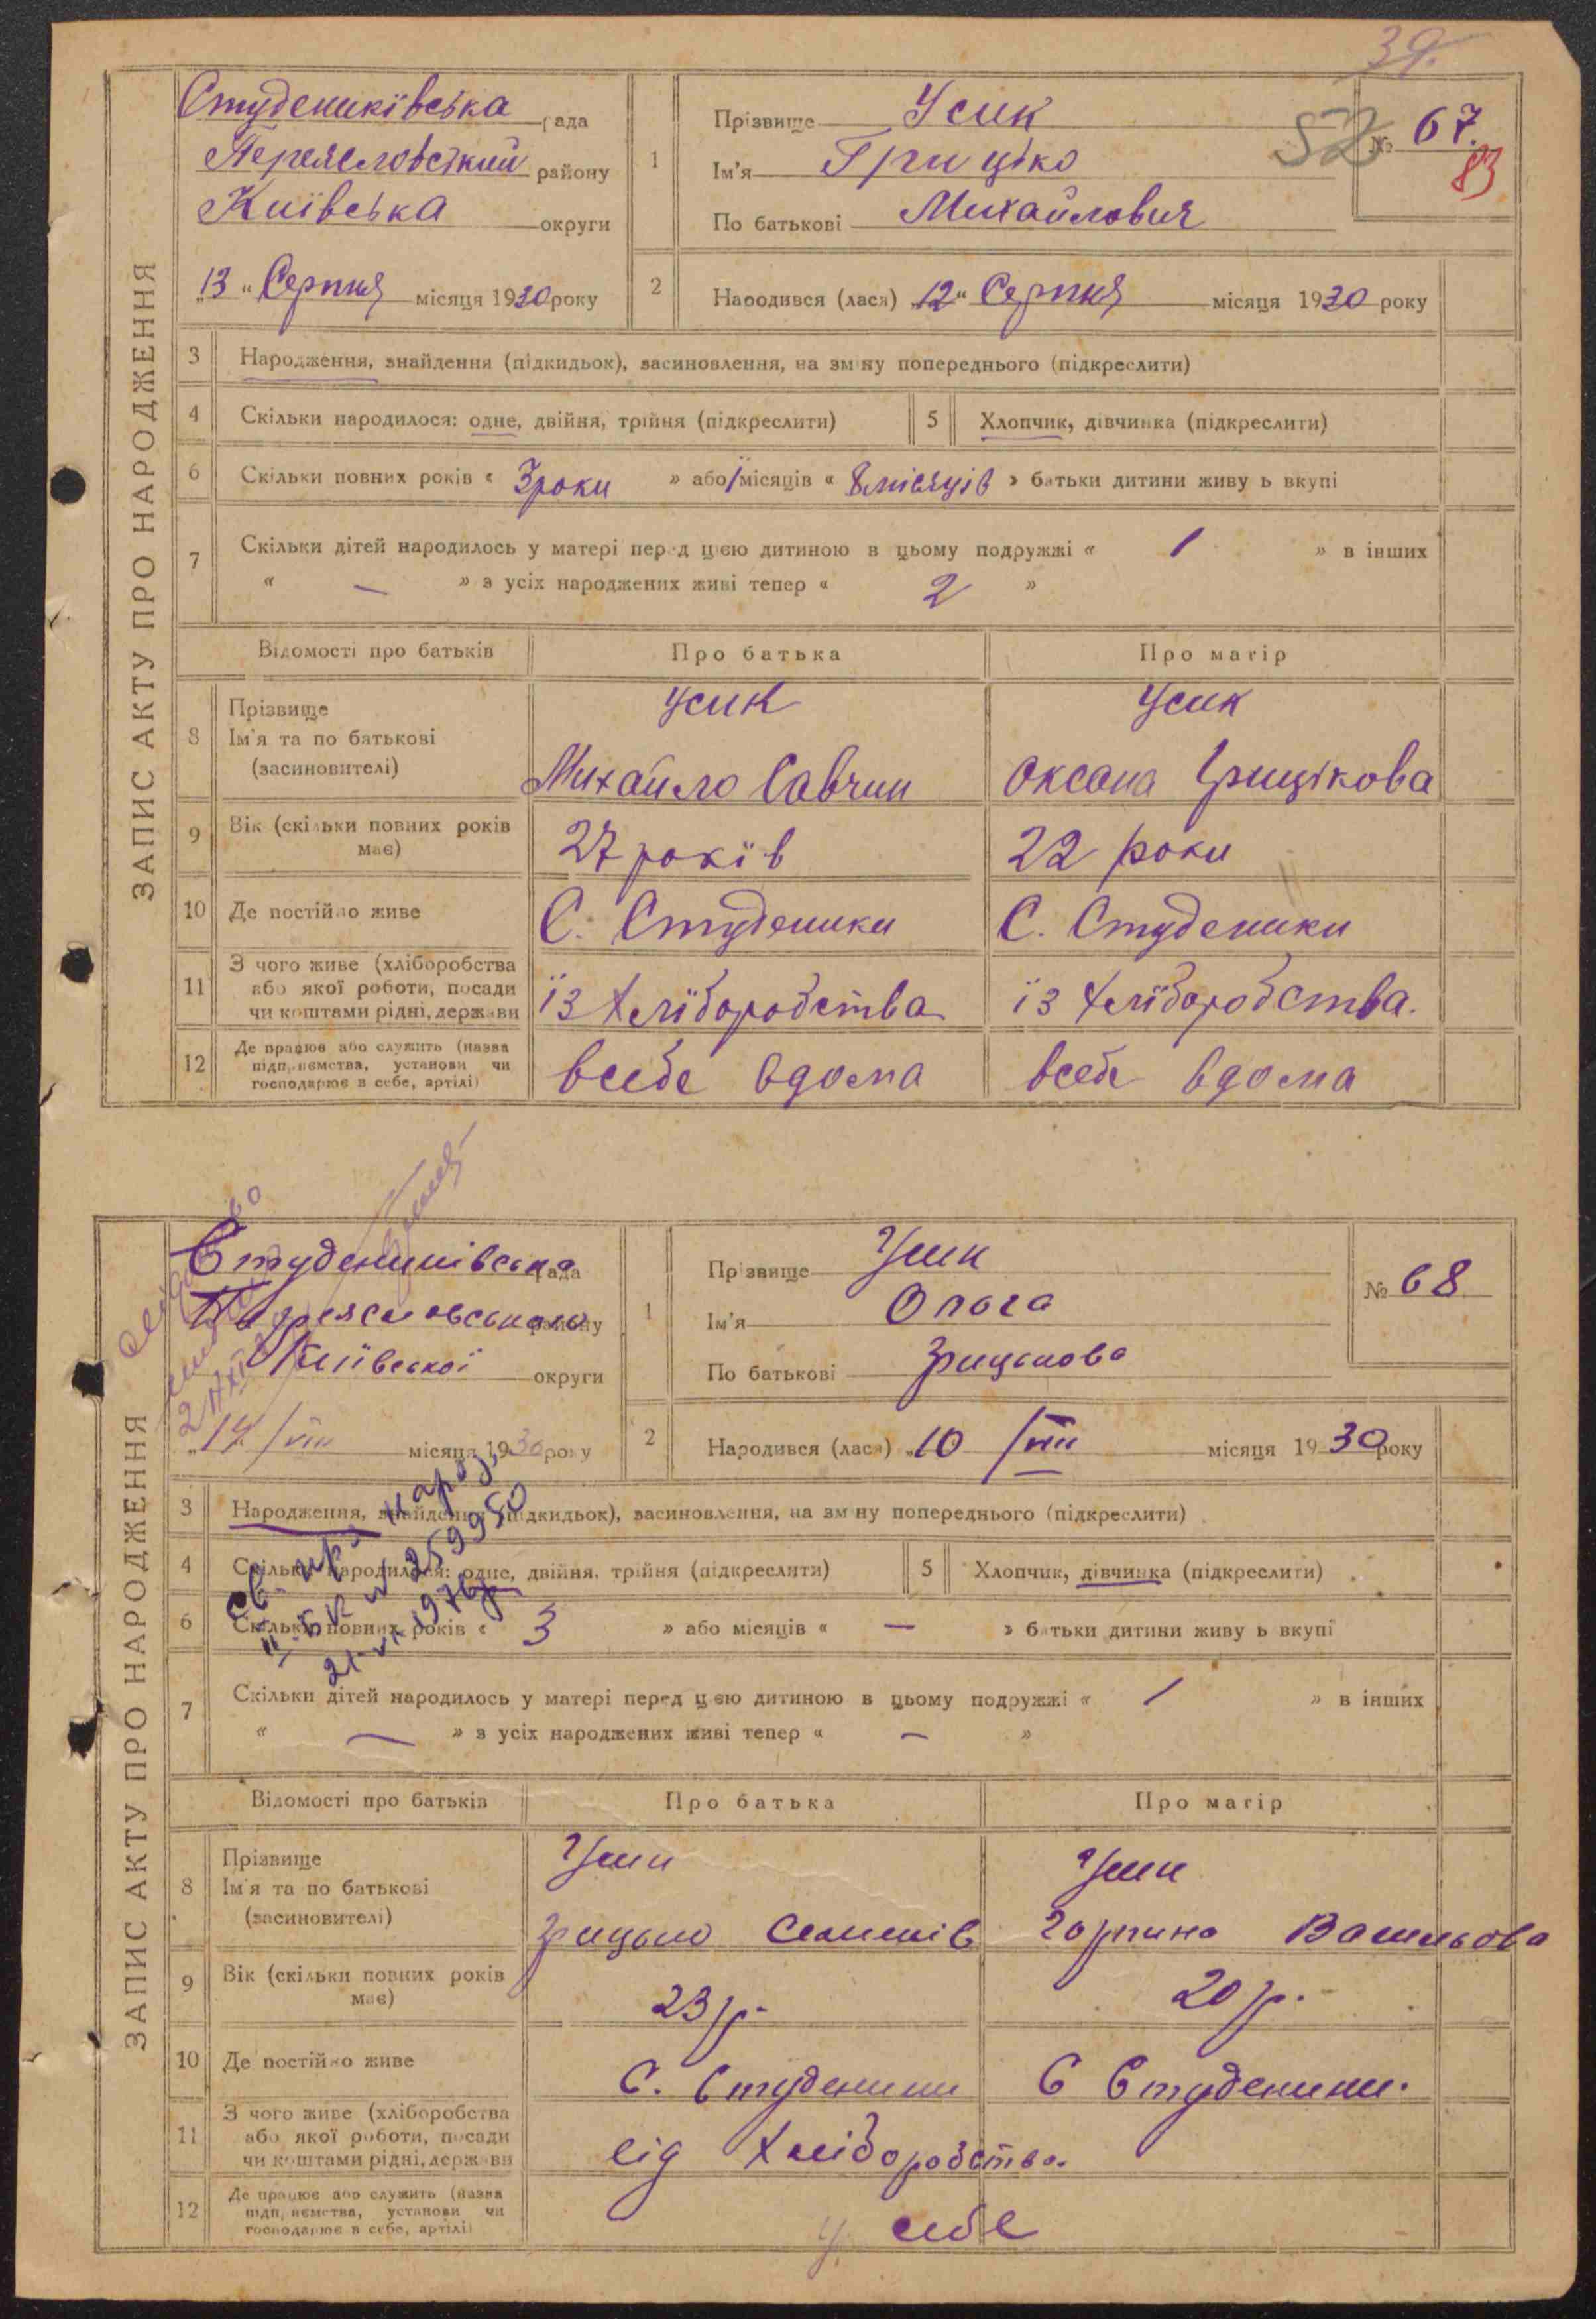 39.
ЗАПИС АКТУ ПРО НАРОДЖЕННЯ
Студениківська рада
Переясловський району
Київська округи
„13" Серпня місяця 1930 року
1
Прізвище Усик
Ім'я Гріцько
По батькові Михайлович
52
№ 67.
83
2
Народився (лася) „12" Серпня місяця 1930 року
3 Народження, знайдення (підкидьок), засиновлення, на зміну попереднього (підкреслити)
4 Скільки народилося: одне, двійня, трійня (підкреслити)
5 Хлопчик, дівчинка (підкреслити)
6 Скільки повних років « 3 роки » або місяців « 8 місяців » батьки дитини живуть вкупі
7 Скільки дітей народилось у матері перед цією дитиною в цьому подружжі « 1 » в інших
« — » з усіх народжених живі тепер « 2 »
Відомості про батьків
Про батька
Про матір
8 Прізвище
Ім'я та по батькові
(засиновителі)
Усик
Михайло Савчин
Усик
Оксана Грицікова
9 Вік (скільки повних років
має)
27 років
22 роки
10 Де постійно живе
С. Студеники
С. Студеники
11 З чого живе (хліборобства
або якої роботи, посади
чи коштами рідні, держави
із хліборобства
із хліборобства.
12 Де працює або служить (назва
підприємства, установи чи
господарює в себе, артілі)
всебе вдома
всебе вдома
ЗАПИС АКТУ ПРО НАРОДЖЕННЯ
Студениківська рада
Переясловського району
Київської округи
„14 /VIII місяця 1930 року
1
Прізвище Усик
Ім'я Ольга
По батькові Грицькова
№ 68
2
Народився (лася) „10 /VIII місяця 1930 року
3 Народження, знайдення (підкидьок), засиновлення, на зміну попереднього (підкреслити)
4 Скільки народилося: одне, двійня, трійня (підкреслити)
5 Хлопчик, дівчинка (підкреслити)
св. про народ.
II-БК № 259950
21-VI-1976р
6 Скільки повних років « 3 » або місяців « — » батьки дитини живуть вкупі
7 Скільки дітей народилось у матері перед цією дитиною в цьому подружжі « 1 » в інших
« — » з усіх народжених живі тепер « — »
Відомості про батьків
Про батька
Про матір
8 Прізвище
Ім'я та по батькові
(засиновителі)
Усик
Грицько
Усик
Горпина Васильова
9 Вік (скільки повних років
має)
23 р.
20 р.
10 Де постійно живе
С. Студеники
С Студеники.
11 З чого живе (хліборобства
або якої роботи, посади
чи коштами рідні, держави
від Хліборобства.
12 Де працює або служить (назва
підприємства, установи чи
господарює в себе, артілі)
у себе